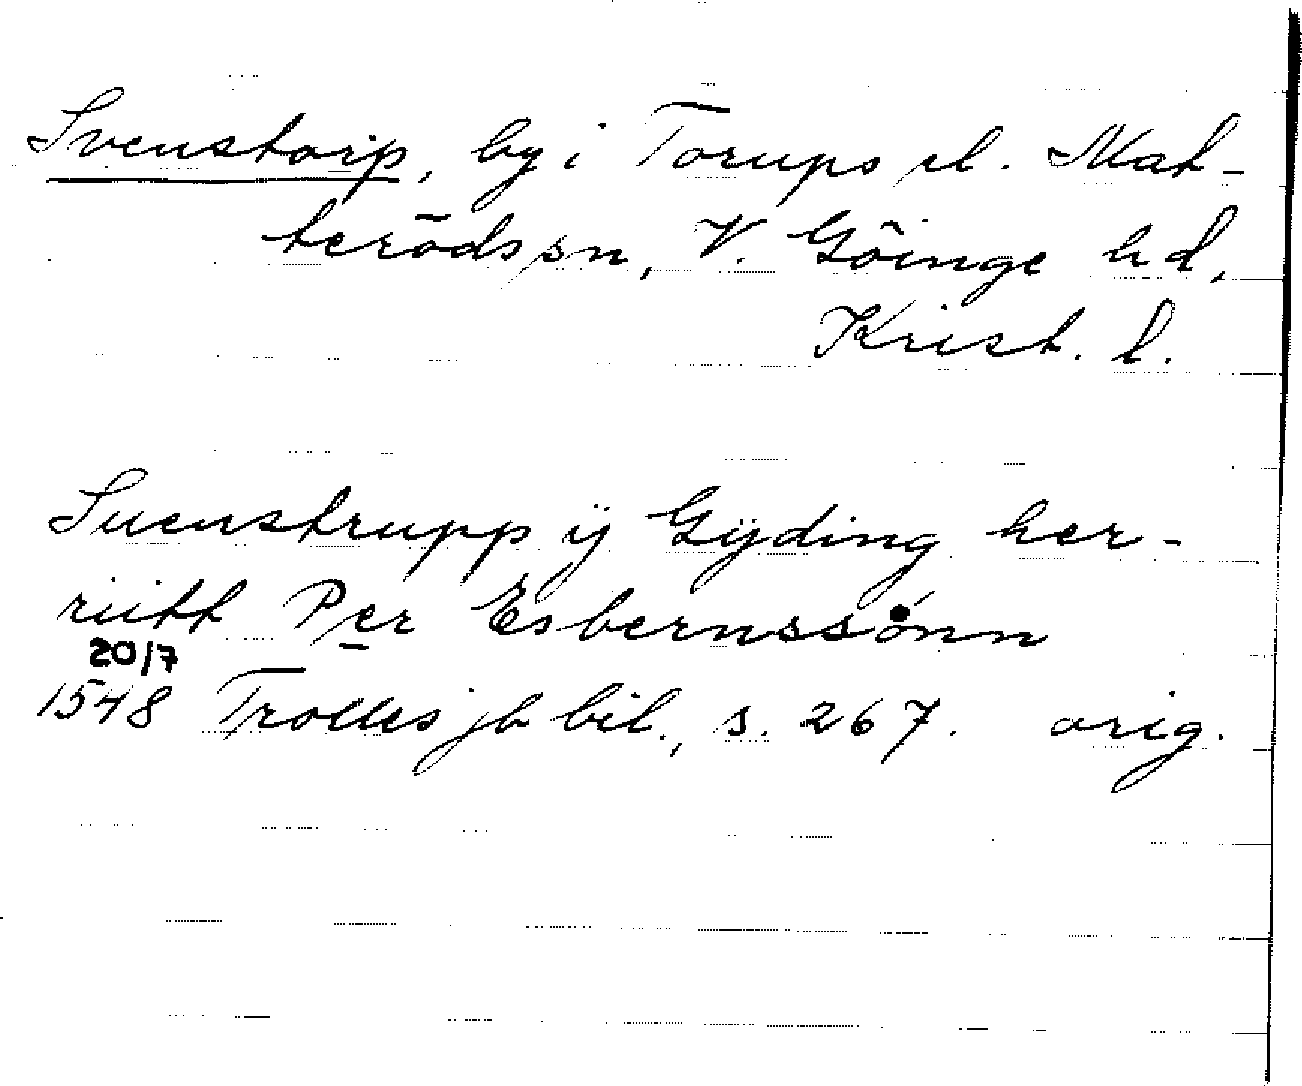 Svenstorp, by i Torups el. Mat-
terödssn, V. Göinge hd,
Krist. l.
Suenstrupp ÿ Gÿding her-
riitt Per Esbernssönn
20/7
1548 Trolles jb bil., s. 267. orig.